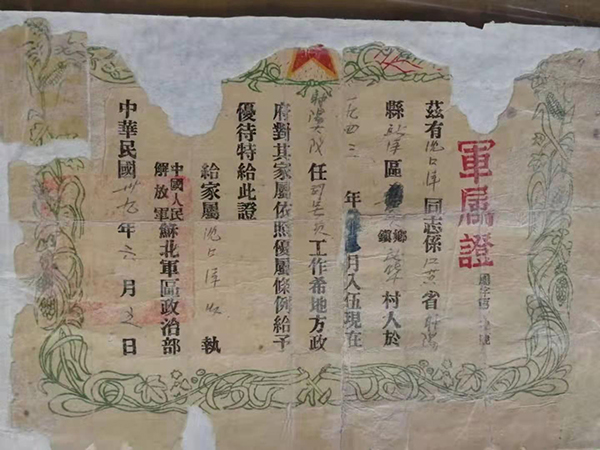 軍屬證
茲有沈占洋同志係江苏省射陽
縣 區 鄉鎮 村人於
一九四三年 月入伍現在
射陽大隊任司号員工作希地方政
府對其家屬依照優屬條例給予
優待特給此證
給家屬沈占 执
中國人民解放軍蘇北軍區政治部
中華民國卅九年六月 日